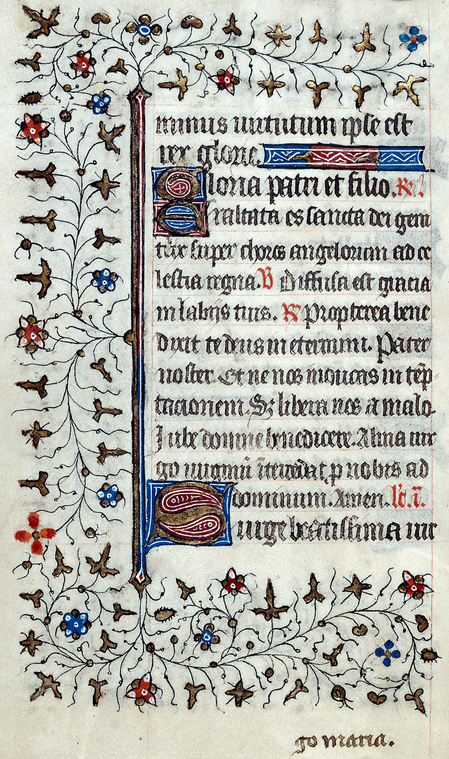 minus uirtutum ipse est
rex glorie.
Gloria patri et filio. R.
Exaltata es sancta dei geni
trix super choros angelorum ad ce
lestia regna. V Diffusa est gracia
in labijs tuis. R Propterea bene
dixit te deus in eternum. Pater
noster. Et ne nos inducas in tēp
tacionem. Sz libera nos a malo.
Iube domne benedicere. Alma uir
go uirginū ītercedat p nobis ad
dominum. Amen. lc̄. i.
Surge beatissima uir
go maria.